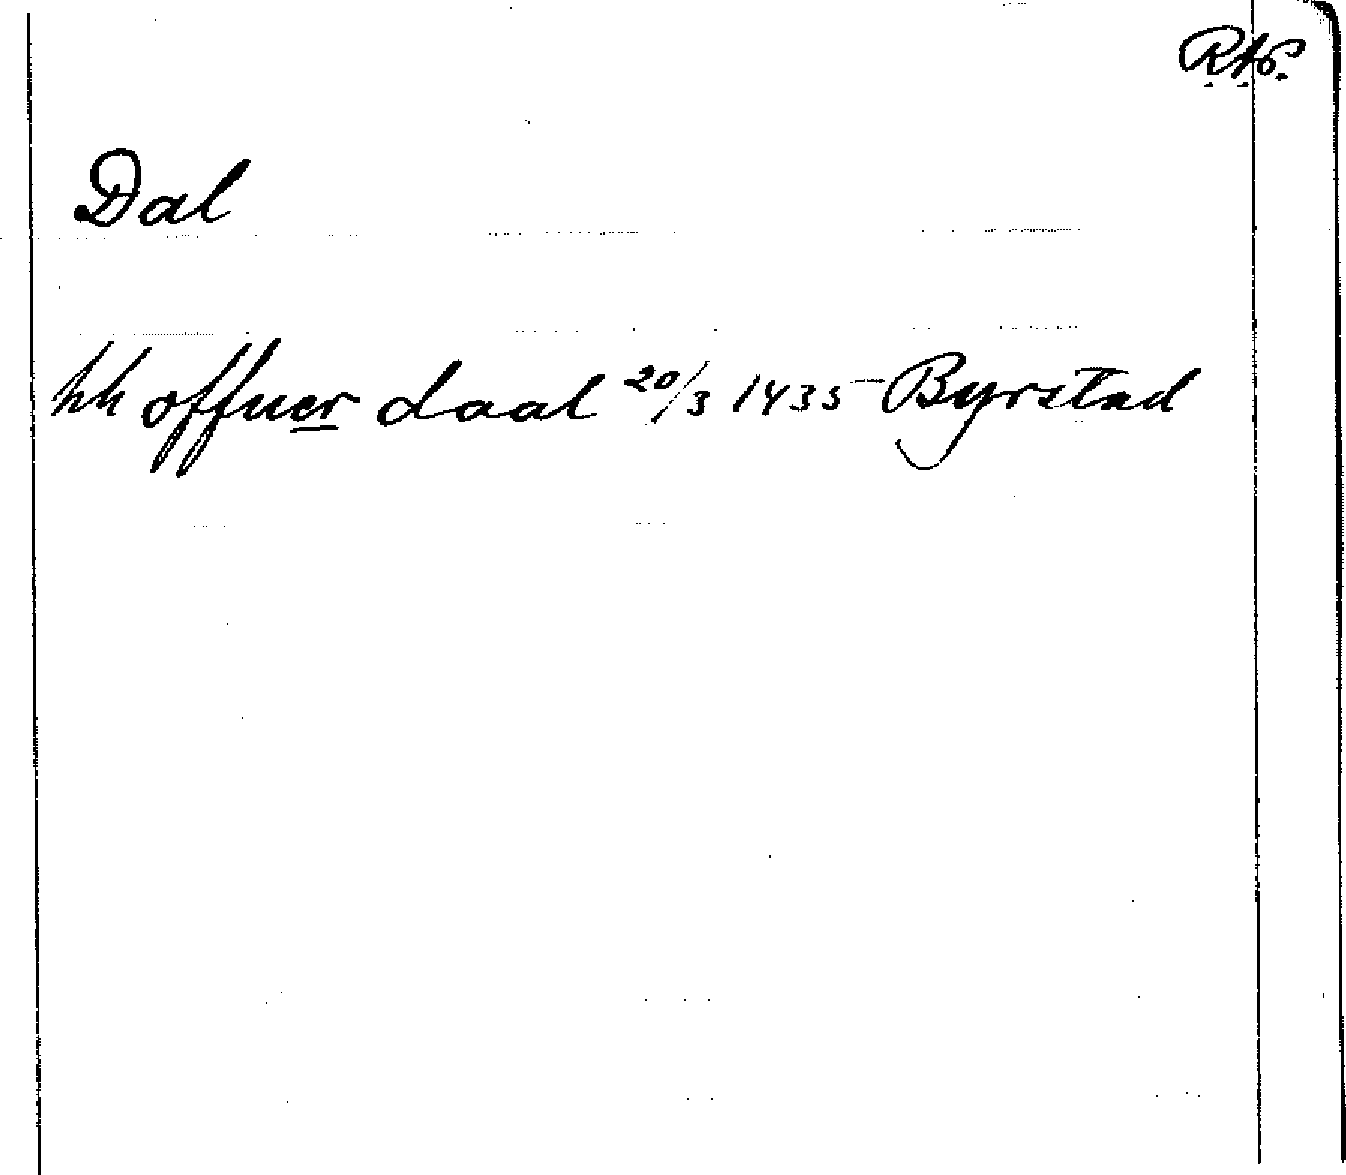 RAp.
Dal
hh offuer daal 20/3 1435 Byrstad